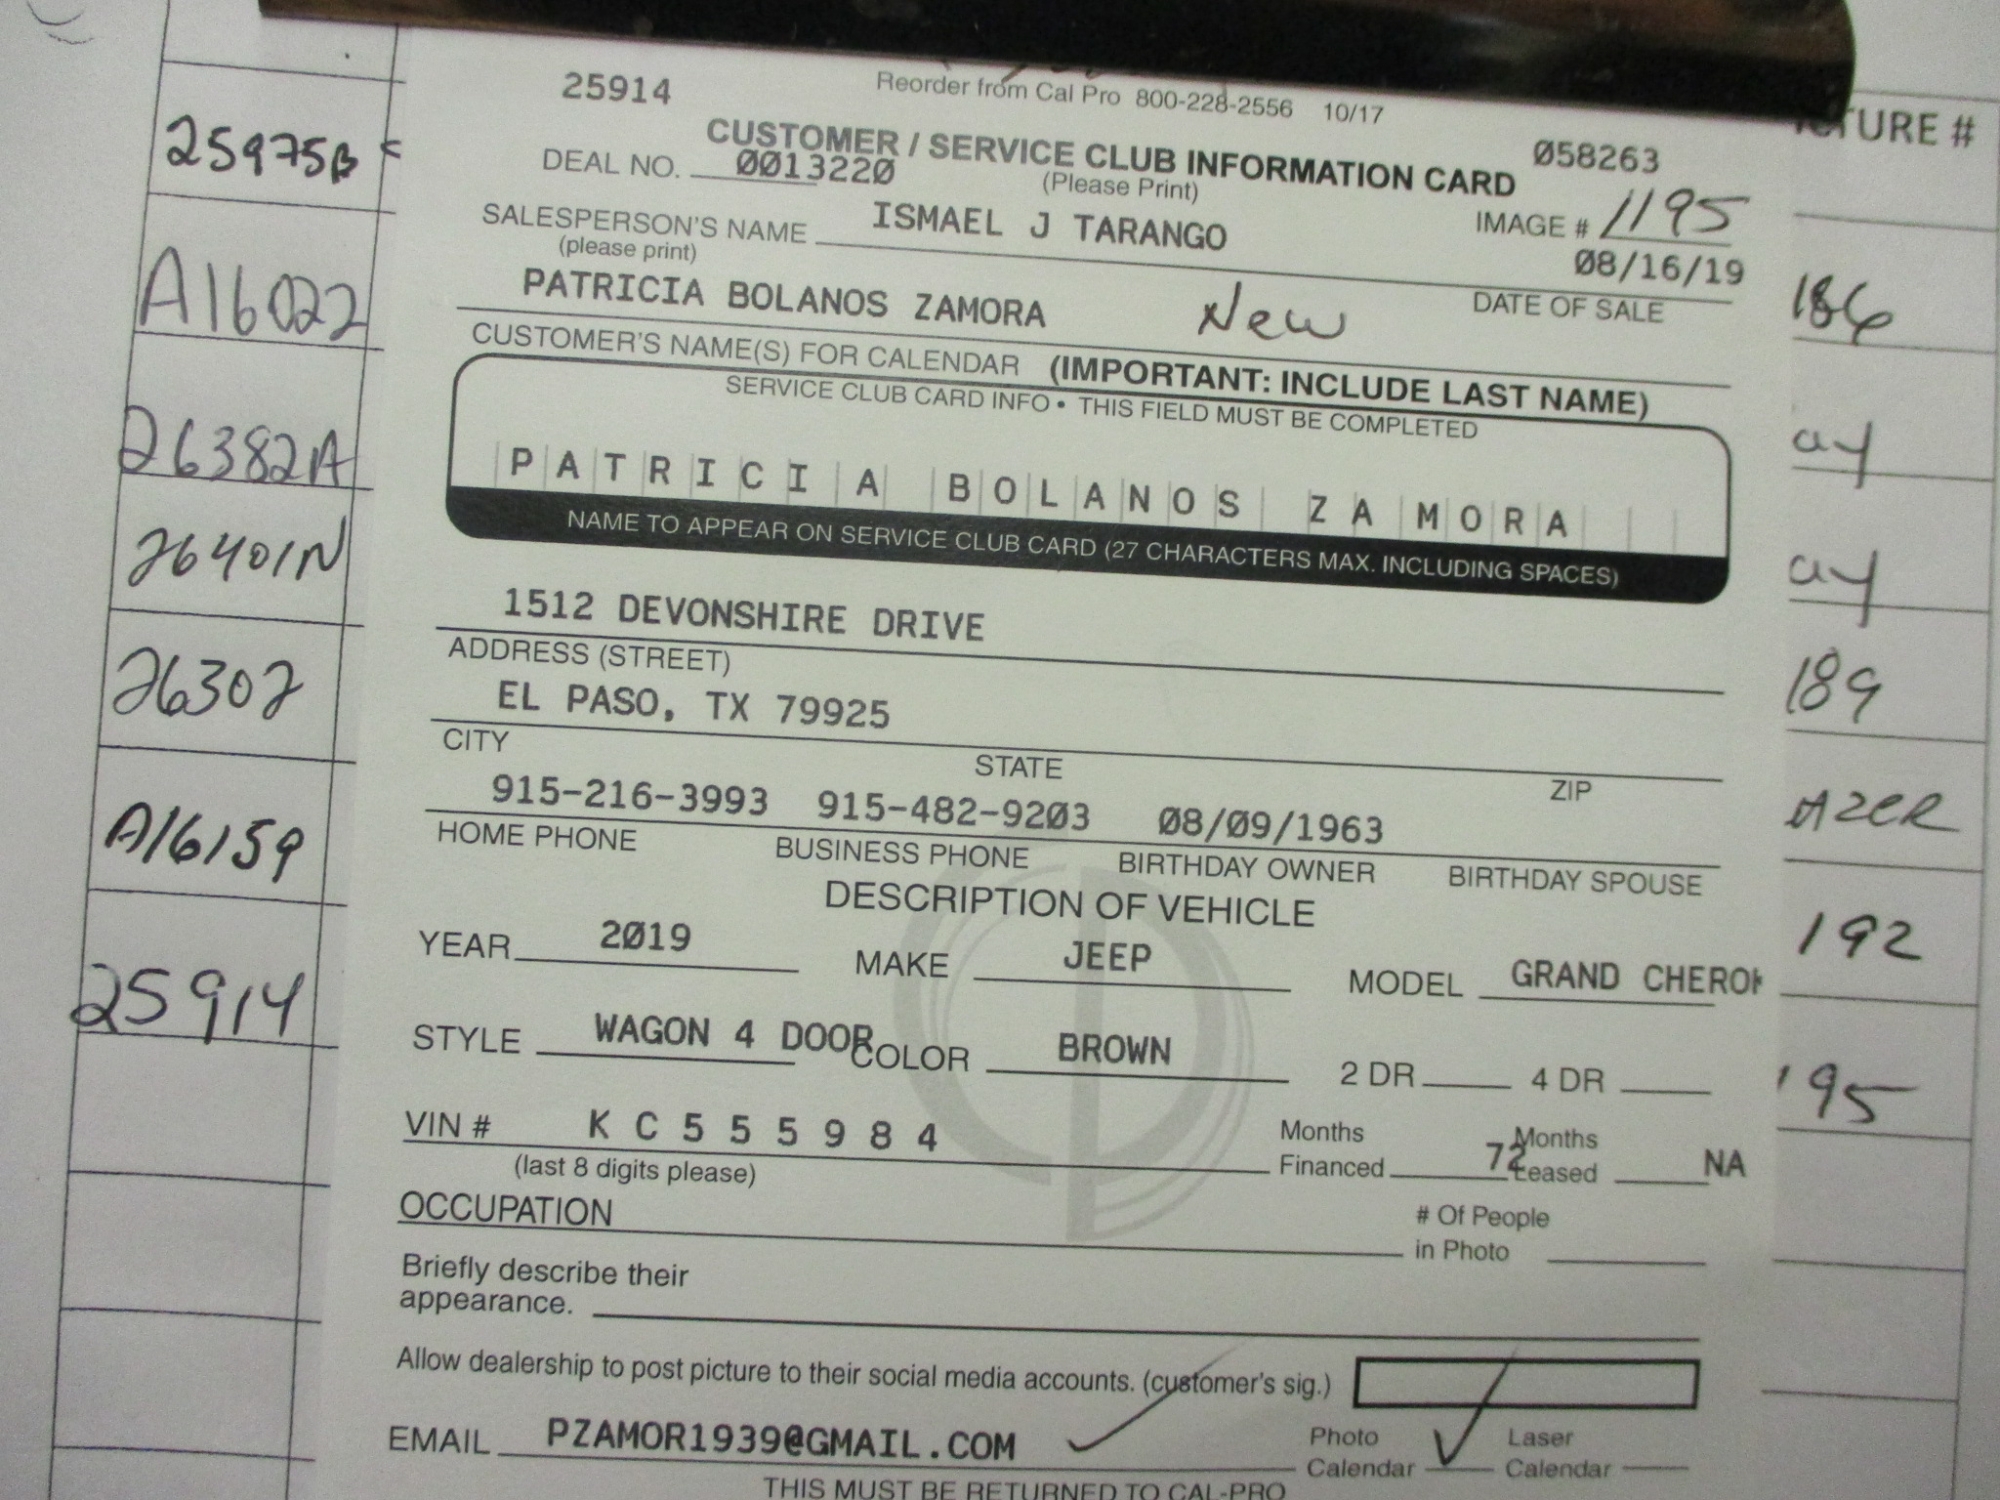 25914
Reorder from Cal Pro 800-228-2556 10/17
CUSTOMER / SERVICE CLUB INFORMATION CARD
Ø58263
DEAL NO. ØØ1322Ø
(Please Print)
SALESPERSON'S NAME ISMAEL J TARANGO
(please print)
IMAGE # 1195
Ø8/16/19
DATE OF SALE
PATRICIA BOLANOS ZAMORA New
CUSTOMER'S NAME(S) FOR CALENDAR (IMPORTANT: INCLUDE LAST NAME)
SERVICE CLUB CARD INFO • THIS FIELD MUST BE COMPLETED
PATRICIA BOLANOS ZAMORA
NAME TO APPEAR ON SERVICE CLUB CARD (27 CHARACTERS MAX. INCLUDING SPACES)
1512 DEVONSHIRE DRIVE
ADDRESS (STREET)
EL PASO, TX 79925
CITY STATE ZIP
915-216-3993 915-482-92Ø3 Ø8/Ø9/1963
HOME PHONE BUSINESS PHONE BIRTHDAY OWNER BIRTHDAY SPOUSE
DESCRIPTION OF VEHICLE
YEAR 2Ø19 MAKE JEEP MODEL GRAND CHEROK
STYLE WAGON 4 DOOR COLOR BROWN 2 DR 4 DR
VIN # K C 5 5 5 9 8 4
(last 8 digits please)
Months Financed 72 Months Leased NA
OCCUPATION
# Of People in Photo
Briefly describe their
appearance.
Allow dealership to post picture to their social media accounts. (customer's sig.)
EMAIL PZAMOR1939@GMAIL.COM
Photo Calendar Laser Calendar
THIS MUST BE RETURNED TO CAL-PRO
25975B
A16022
26382A
26401N
26302
A16159
25914
TURE #
186
ay
ay
189
AZER
192
195